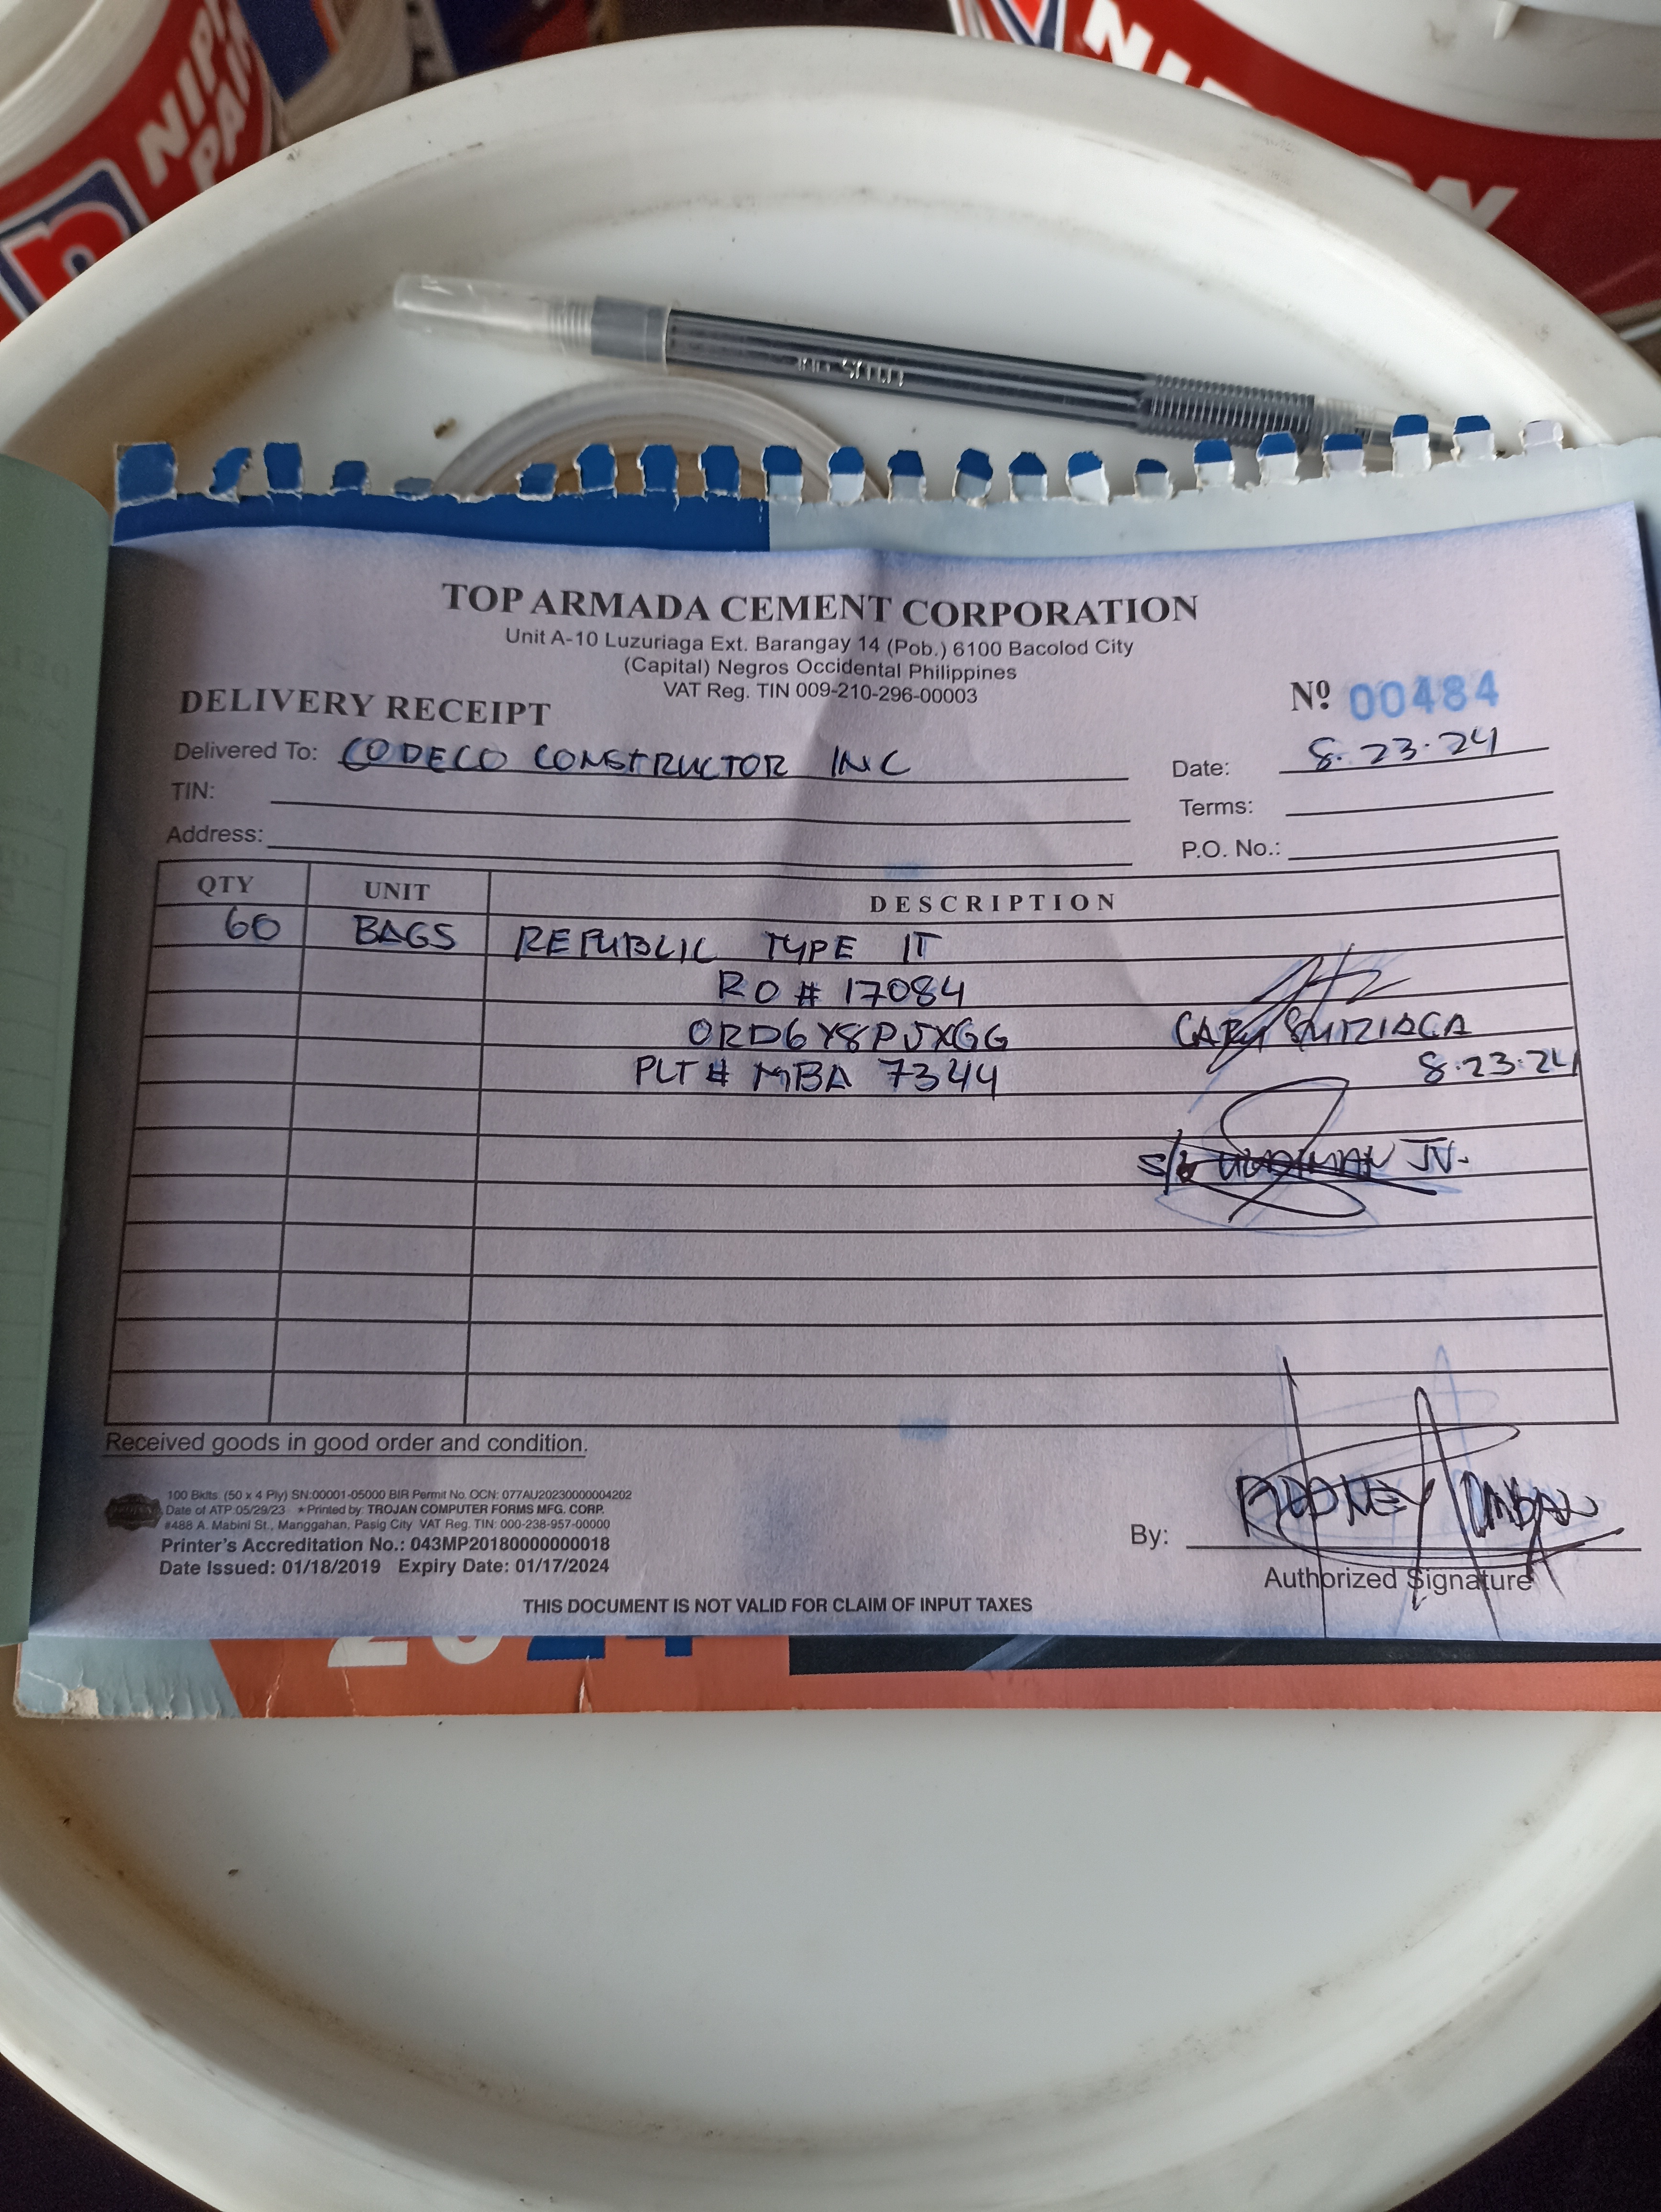 NIPP
PAIN
NIPPON
TOP ARMADA CEMENT CORPORATION
Unit A-10 Luzuriaga Ext. Barangay 14 (Pob.) 6100 Bacolod City
(Capital) Negros Occidental Philippines
VAT Reg. TIN 009-210-296-00003
DELIVERY RECEIPT
Nº 00484
Delivered To: CODECO CONSTRUCTOR INC
Date: 8.23.24
TIN:
Terms:
Address:
P.O. No.:
QTY UNIT DESCRIPTION
60 BAGS REPUBLIC TYPE IT
RO # 17084
ORD6Y8PJXGG
8.23.24
PLT # MBA 7344
JV.
Received goods in good order and condition.
100 Bklts. (50 x 4 Ply) SN:00001-05000 BIR Permit No. OCN: 077AU20230000004202
Date of ATP 05/29/23 ★Printed by: TROJAN COMPUTER FORMS MFG. CORP.
#488 A. Mabini St., Manggahan, Pasig City VAT Reg. TIN: 000-238-957-00000
Printer's Accreditation No.: 043MP20180000000018
Date Issued: 01/18/2019 Expiry Date: 01/17/2024
RODNEY
By:
Authorized Signature
THIS DOCUMENT IS NOT VALID FOR CLAIM OF INPUT TAXES
2024